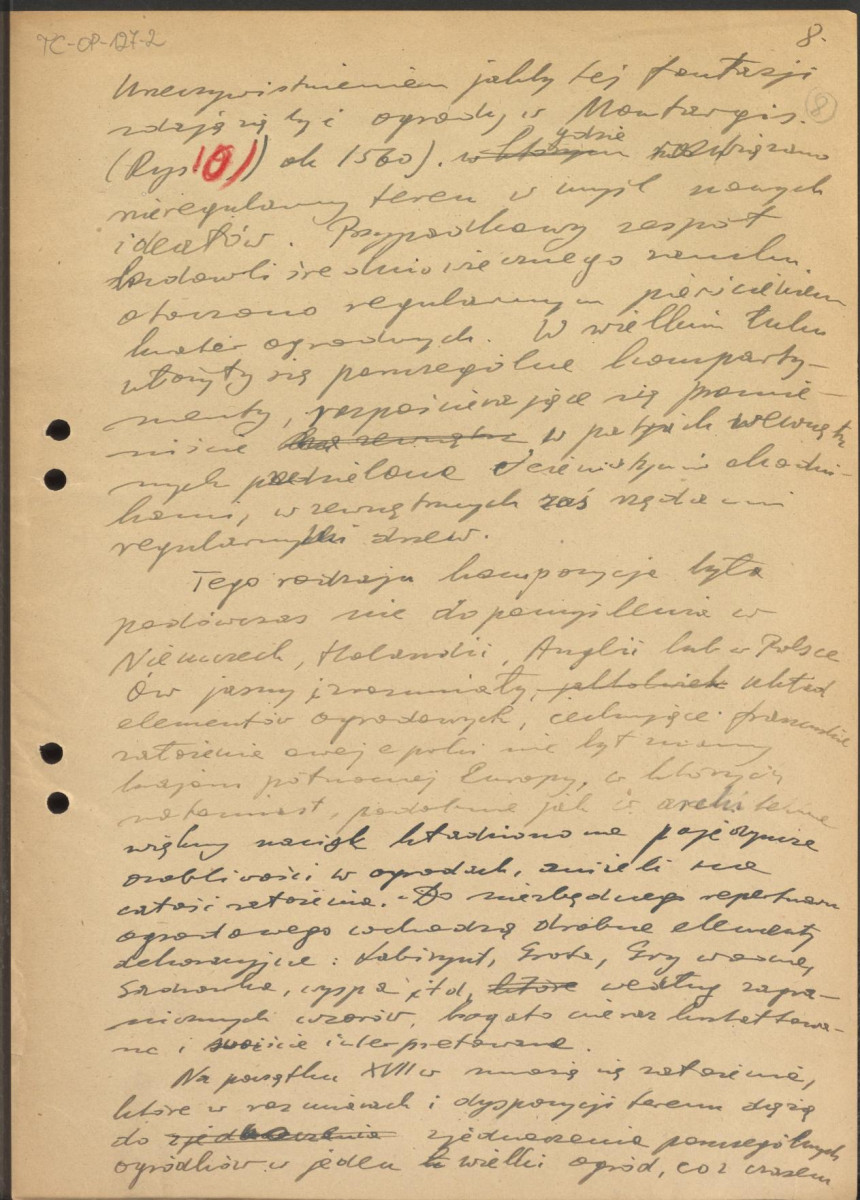 TC-OP-127-2
8.
(8)
Urzeczywistnieniem jakby tej fantazji
zdają się być ogrody w Montargis.
(Rys 10)) ok 1560). w którym gdzie rozwiązano
nieregularny teren w myśl nowych
ideałów. Przypadkowy zespół
budowli średniowiecznego zamku
otoczono regularnym pierścieniem
kwater ogrodowych. W wielkim łuku
ułożyły się poszczególne komparty-
menty, rozpościerające się promie-
niście na zewnątrz w partjach wewnętrz
nych podzielone cienistymi chodni-
kami, w zewnętrznych zaś rzędami
regularnymi drzew.
Tego rodzaju kompozycja była
podówczas nie do pomyślenia w
Niemczech, Holandii, Anglii lub w Polsce
Ów jasny i zrozumiały, jakkolwiek układ
elementów ogrodowych, cechujące francuskie
założenia owej epoki nie był znany
krajom północnej Europy, w których
natomiast, podobnie jak w architekturze
większy nacisk kładziono na pojedyncze
osobliwości w ogrodach, aniżeli na
całość założenia. Do niezbędnego repertuaru
ogrodowego wchodzą drobne elementy
dekoracyjne: Labirynt, Grota, Gry wodne,
Sadzawka, wyspa itd, które według zagra-
nicznych wzorów, bogato nieraz kształtowa-
ne i swoiście interpretowane.
Na początku XVII w mnożą się założenia,
które w rozmiarach i dyspozycji terenu dążą
do zjednoczenia zjednoczenia poszczególnych
ogródków w jeden wielki ogród, co z czasem